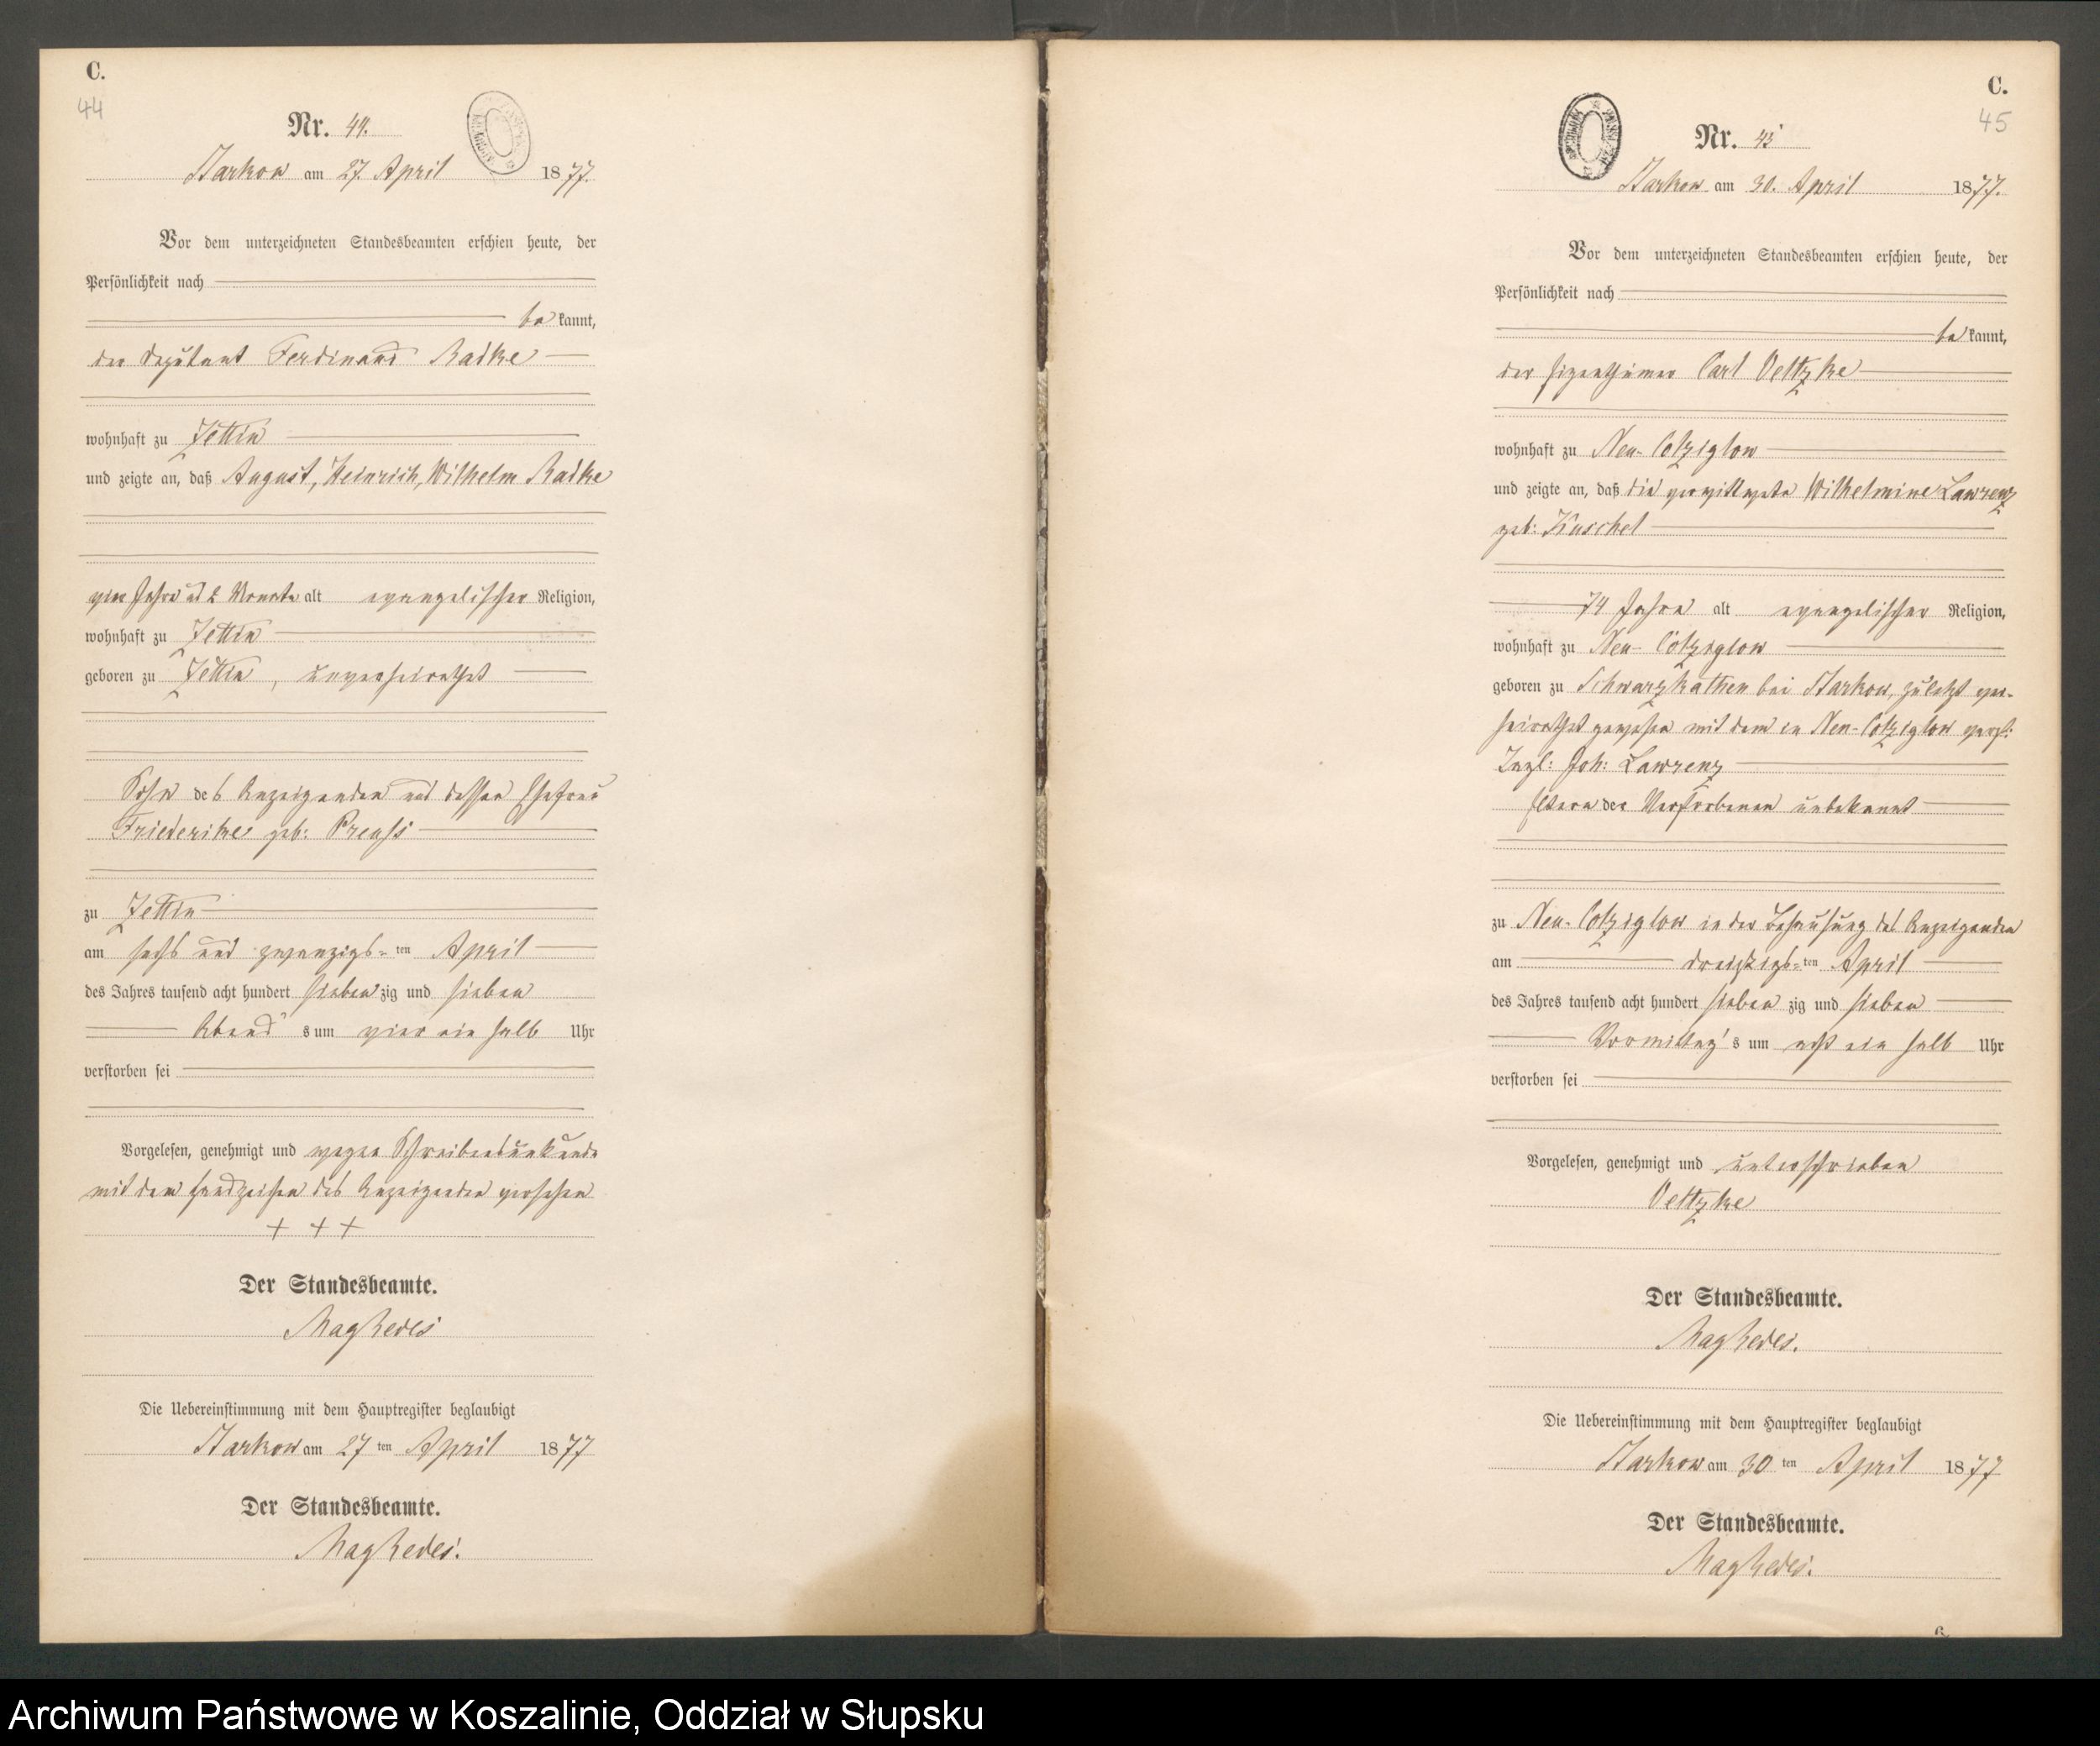 C.
44
Nr. 44.
Starkow am 27. April 1877.
Vor dem unterzeichneten Standesbeamten erschien heute, der
Persönlichkeit nach
be kannt,
der Deputant Ferdinand Radke
wohnhaft zu Zettin
und zeigte an, daß August, Heinrich, Wilhelm Radke
Jahre und 2 Monate alt evangelischer Religion,
wohnhaft zu Zettin
geboren zu Zettin, unverheirathet
Sohn des Anzeigenden und dessen Ehefrau
Friederike geb: Preuß
zu Zettin
am sechs und zwanzigs-ten April
des Jahres tausend acht hundert sieben zig und sieben
Abend's um vier ein halb Uhr
verstorben sei
Vorgelesen, genehmigt und wegen Schreibensunkunde
mit dem Handzeichen des Anzeigenden versehen
+ + +
Der Standesbeamte.
Die Uebereinstimmung mit dem Hauptregister beglaubigt
Starkow am 27 ten April 1877
Der Standesbeamte.
C.
45
Nr. 45
Starkow am 30. April 1877.
Vor dem unterzeichneten Standesbeamten erschien heute, der
Persönlichkeit nach
be kannt,
der Eigenthümer Carl Oettzke
wohnhaft zu Neu-Cotziglow
und zeigte an, daß die verwittwete Wilhelmine Lawrenz
geb: Kuschel
74 Jahre alt evangelischer Religion,
wohnhaft zu Neu-Cotziglow
geboren zu Schwarzkathen bei Starkow, zuletzt ver-
heirathet gewesen mit dem in Neu-Cotziglow verst:
Joh: Lawrenz
Eltern der Verstorbenen unbekannt
zu Neu-Cotziglow in der Behausung des Anzeigenden
am dreißigs-ten April
des Jahres tausend acht hundert sieben zig und sieben
Vormittag's um acht ein halb Uhr
verstorben sei
Vorgelesen, genehmigt und unterschrieben
Oettzke
Der Standesbeamte.
Die Uebereinstimmung mit dem Hauptregister beglaubigt
Starkow am 30 ten April 1877
Der Standesbeamte.
Archiwum Państwowe w Koszalinie, Oddział w Słupsku